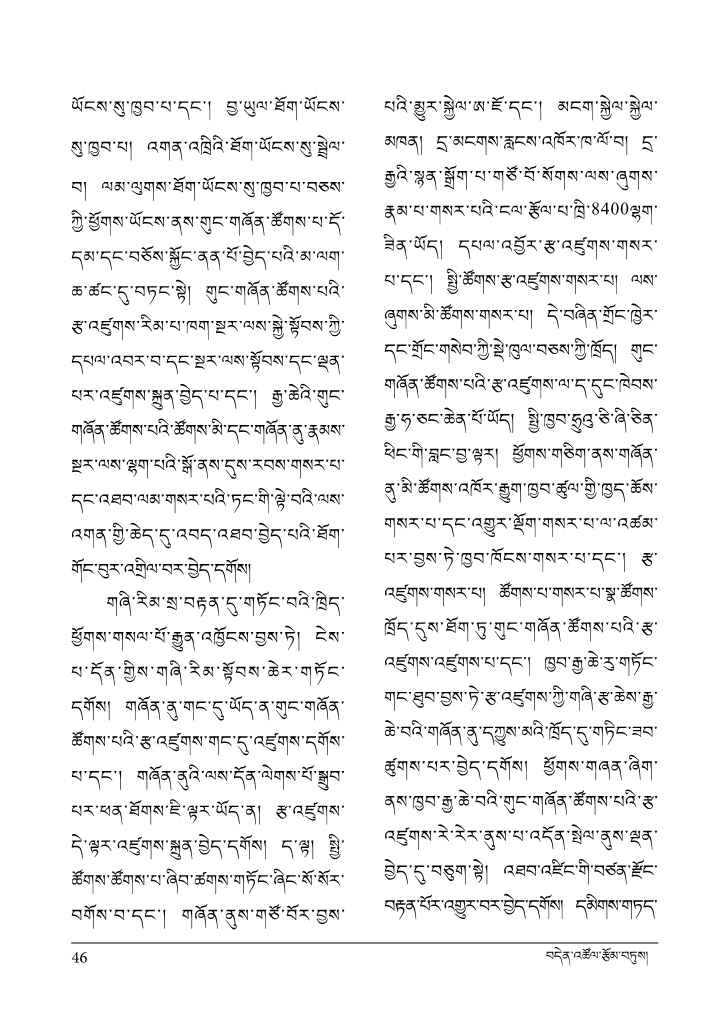 ཡོངས་སུ་ཁྱབ་པ་དང་། བྱ་ཡུལ་ཐོག་ཡོངས་
སུ་ཁྱབ་པ། འགན་འཁྲིའི་ཐོག་ཡོངས་སུ་སྦྲེལ་
བ། ལམ་ལུགས་ཐོག་ཡོངས་སུ་ཁྱབ་པ་བཅས་
ཀྱི་ཕྱོགས་ཡོངས་ནས་གུང་གཞོན་ཚོགས་པ་དོ་
དམ་དང་བཅོས་སྐྱོང་ནན་པོ་བྱེད་པའི་མ་ལག་
ཆ་ཚང་དུ་བཏང་སྟེ། གུང་གཞོན་ཚོགས་པའི་
རྩ་འཛུགས་རིམ་པ་ཁག་སྔར་ལས་སྐྱེ་སྟོབས་ཀྱི་
དཔལ་འབར་བ་དང་སྔར་ལས་སྟོབས་དང་ལྡན་
པར་འཛུགས་སྐྲུན་བྱེད་པ་དང་། རྒྱ་ཆེའི་གུང་
གཞོན་ཚོགས་པའི་ཚོགས་མི་དང་གཞོན་ནུ་རྣམས་
སྔར་ལས་ལྷག་པའི་སྒོ་ནས་དུས་རབས་གསར་པ་
དང་འཐབ་ལམ་གསར་པའི་ཏང་གི་ལྟེ་བའི་ལས་
འགན་གྱི་ཆེད་དུ་འབད་འཐབ་བྱེད་པའི་ཐོག་
གོང་བུར་འགྲིལ་བར་བྱེད་དགོས།
གཞི་རིམ་སྲ་བརྟན་དུ་གཏོང་བའི་ཁྲིད་
ཕྱོགས་གསལ་པོ་རྒྱུན་འཁྱོངས་བྱས་ཏེ། ངེས་
པ་དོན་གྱིས་གཞི་རིམ་སྟོབས་ཆེར་གཏོང་
དགོས། གཞོན་ནུ་གང་དུ་ཡོད་ན་གུང་གཞོན་
ཚོགས་པའི་རྩ་འཛུགས་གང་དུ་འཛུགས་དགོས་
པ་དང་། གཞོན་ནུའི་ལས་དོན་ལེགས་པོ་སྒྲུབ་
པར་ཕན་ཐོགས་ཇི་ལྟར་ཡོད་ན། རྩ་འཛུགས་
དེ་ལྟར་འཛུགས་སྐྲུན་བྱེད་དགོས། ད་ལྟ། སྤྱི་
ཚོགས་ཚོགས་པ་ཞིབ་ཚགས་གཏོང་ཞིང་སོ་སོར་
བགོས་བ་དང་། གཞོན་ནུས་གཙོ་བོར་བྱས་
པའི་མྱུར་སྐྱེལ་ཨ་ཇོ་དང་། མངག་སྐྱེལ་སྐྱེལ་
མཁན། དྲ་མངགས་རླངས་འཁོར་ཁ་ལོ་བ། དྲ་
རྒྱའི་སྙན་སྒྲོག་པ་གཙོ་བོ་སོགས་ལས་ཞུགས་
རྣམ་པ་གསར་པའི་ངལ་རྩོལ་པ་ཁྲི་8400ལྷག་
ཟིན་ཡོད། དཔལ་འབྱོར་རྩ་འཛུགས་གསར་
པ་དང་། སྤྱི་ཚོགས་རྩ་འཛུགས་གསར་པ། ལས་
ཞུགས་མི་ཚོགས་གསར་པ། དེ་བཞིན་གྲོང་ཁྱེར་
དང་གྲོང་གསེབ་ཀྱི་སྡེ་ཁུལ་བཅས་ཀྱི་ཁྲོད། གུང་
གཞོན་ཚོགས་པའི་རྩ་འཛུགས་ལ་ད་དུང་ཁེབས་
རྒྱ་ཧ་ཅང་ཆེན་པོ་ཡོད། སྤྱི་ཁྱབ་ཧྲུའུ་ཅི་ཞི་ཅིན་
ཕིང་གི་བླང་བྱ་ལྟར། ཕྱོགས་གཅིག་ནས་གཞོན་
ནུ་མི་ཚོགས་འཁོར་རྒྱུག་ཁྱབ་ཚུལ་གྱི་ཁྱད་ཆོས་
གསར་པ་དང་འགྱུར་ལྡོག་གསར་པ་ལ་འཚམ་
པར་བྱས་ཏེ་ཁྱབ་ཁོངས་གསར་པ་དང་། རྩ་
འཛུགས་གསར་པ། ཚོགས་པ་གསར་པ་སྣ་ཚོགས་
ཁྲོད་དུས་ཐོག་ཏུ་གུང་གཞོན་ཚོགས་པའི་རྩ་
འཛུགས་འཛུགས་པ་དང་། ཁྱབ་རྒྱ་ཆེ་རུ་གཏོང་
གང་ཐུབ་བྱས་ཏེ་རྩ་འཛུགས་ཀྱི་གཞི་རྩ་ཆེས་རྒྱ་
ཆེ་བའི་གཞོན་ནུ་དཀྱུས་མའི་ཁྲོད་དུ་གཏིང་ཟབ་
ཚུགས་པར་བྱེད་དགོས། ཕྱོགས་གཞན་ཞིག་
ནས་ཁྱབ་རྒྱ་ཆེ་བའི་གུང་གཞོན་ཚོགས་པའི་རྩ་
འཛུགས་རེ་རེར་ནུས་པ་འདོན་སྤེལ་ནུས་ལྡན་
བྱེད་དུ་བཅུག་སྟེ། འཐབ་འཛིང་གི་བཙན་རྫོང་
བརྟན་པོར་འགྱུར་བར་བྱེད་དགོས། དམིགས་གཏད་
46
བདེན་འཚོལ་རྩོམ་བཏུས།